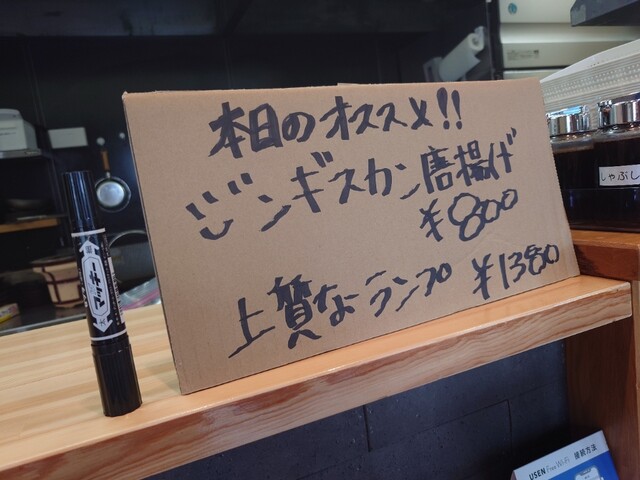 本日のオススメ!!
ジンギスカン唐揚げ
¥800
上質なランプ ¥1380
しゃぶし
USEN Free Wi-Fi 接続方法